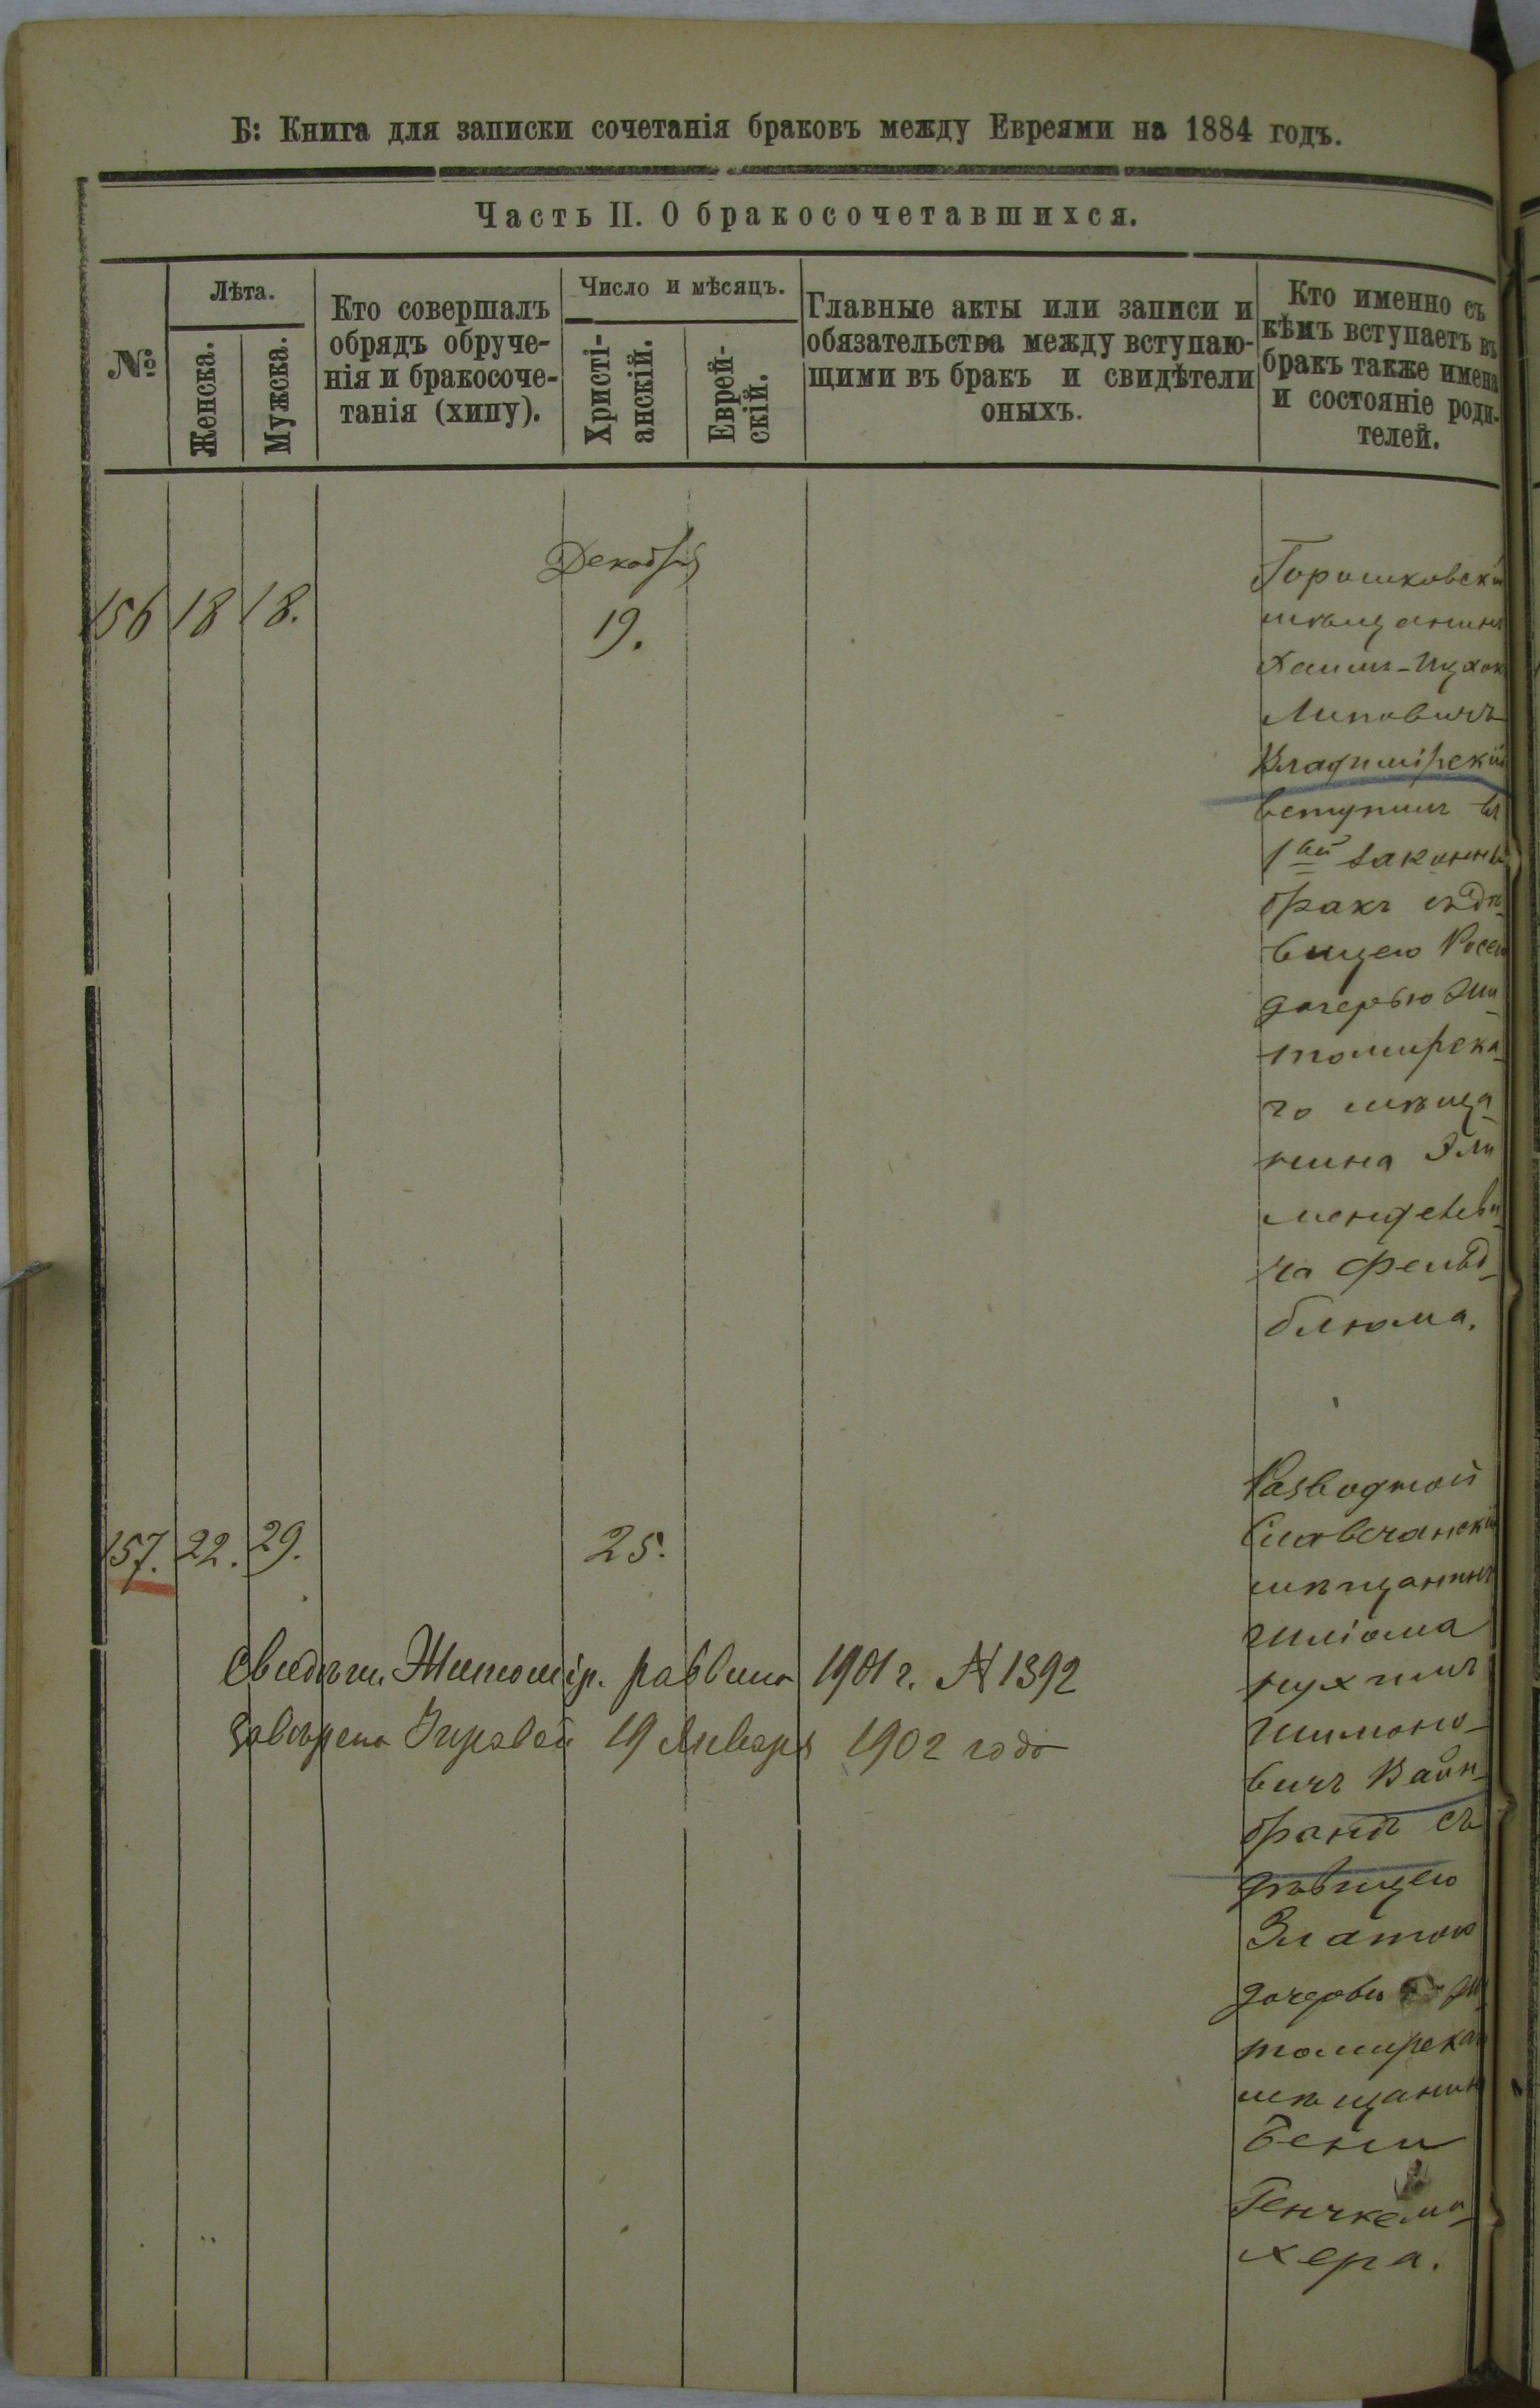 Б: Книга для записки сочетанія браковъ между Евреями на 1884 годъ.
Часть II. О бракосочетавшихся.
№
Лѣта.
Женска.
Мужска.
Кто совершалъ
обрядъ обруче-
нія и бракосоче-
танія (хипу).
Число и мѣсяцъ.
Христі-
анскій.
Еврей-
скій.
Главные акты или записи и
обязательства между вступаю-
щими въ бракъ и свидѣтели
оныхъ.
Кто именно съ
кѣмъ вступаетъ въ
бракъ также имена
и состояніе роди-
телей.
156 18 18.
Декабря
19.
Горошковскій
мѣщанинъ
Хаимъ-Ицхок
Липовичъ
Владимірскій
вступилъ въ
1вый законный
бракъ съ дѣ-
вицею Росею
дочерью Жи-
томирска-
го мѣща-
нина Эли
Менделеви-
ча Фельд-
блюма.
157. 22. 29.
25.
Разводной
Славечанскій
мѣщанинъ
Шліома
Нухимъ
Шимоно-
вичъ Вайн-
брандъ съ
дѣвицею
Златою
дочерью Жи-
томирскаго
мѣщанина
Бени
Генчкема-
хера.
Свидѣт. Житомір. раввина 1901 г. № 1392
завѣрено Управой 19 Января 1902 года